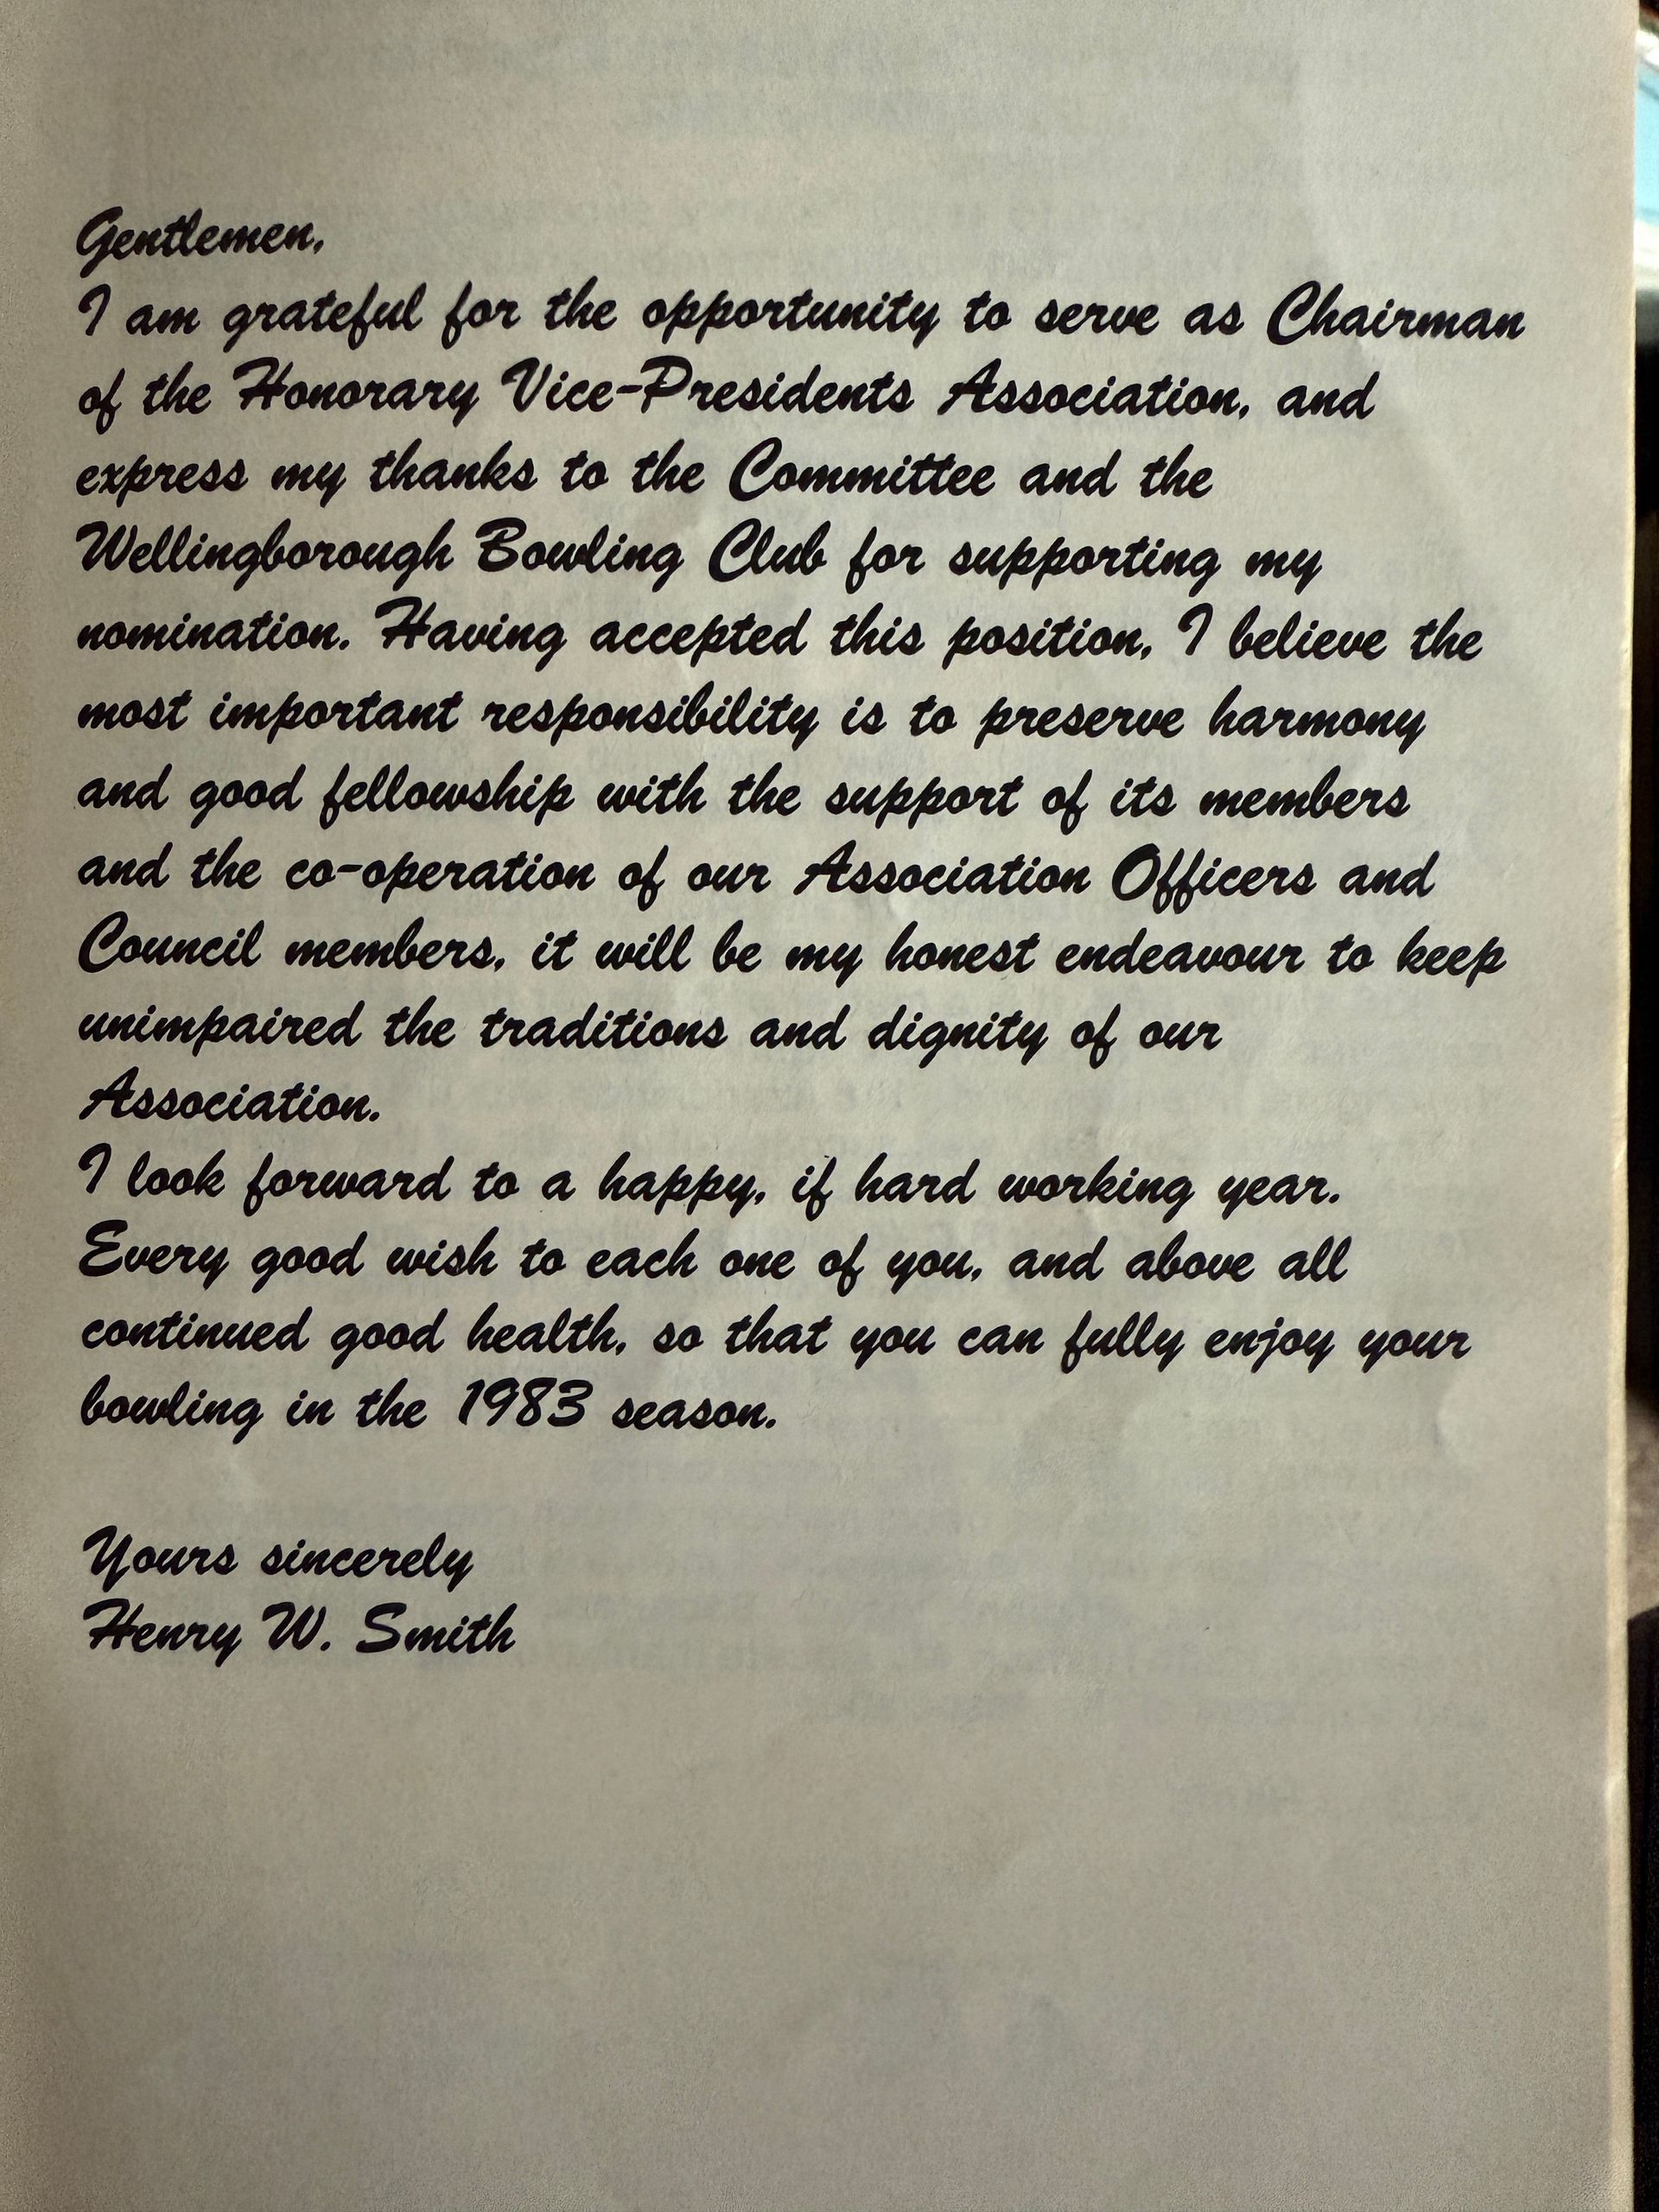 Gentlemen,
I am grateful for the opportunity to serve as Chairman
of the Honorary Vice-Presidents Association, and
express my thanks to the Committee and the
Wellingborough Bowling Club for supporting my
nomination. Having accepted this position, I believe the
most important responsibility is to preserve harmony
and good fellowship with the support of its members
and the co-operation of our Association Officers and
Council members, it will be my honest endeavour to keep
unimpaired the traditions and dignity of our
Association.
I look forward to a happy, if hard working year.
Every good wish to each one of you, and above all
continued good health, so that you can fully enjoy your
bowling in the 1983 season.
Yours sincerely
Henry W. Smith